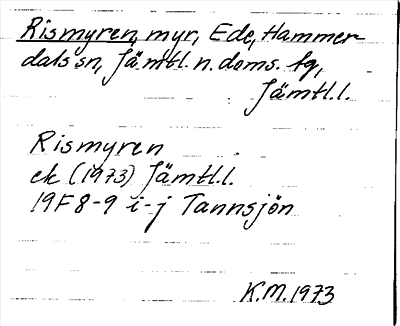 Rismyren, myr, Ede, Hammer-
dals sn, Jämtl. n. doms. fg,
Jämtl.l.
Rismyren
ek (1973) Jämtl.l.
19F 8-9 i-j Tannsjön
K.M. 1973